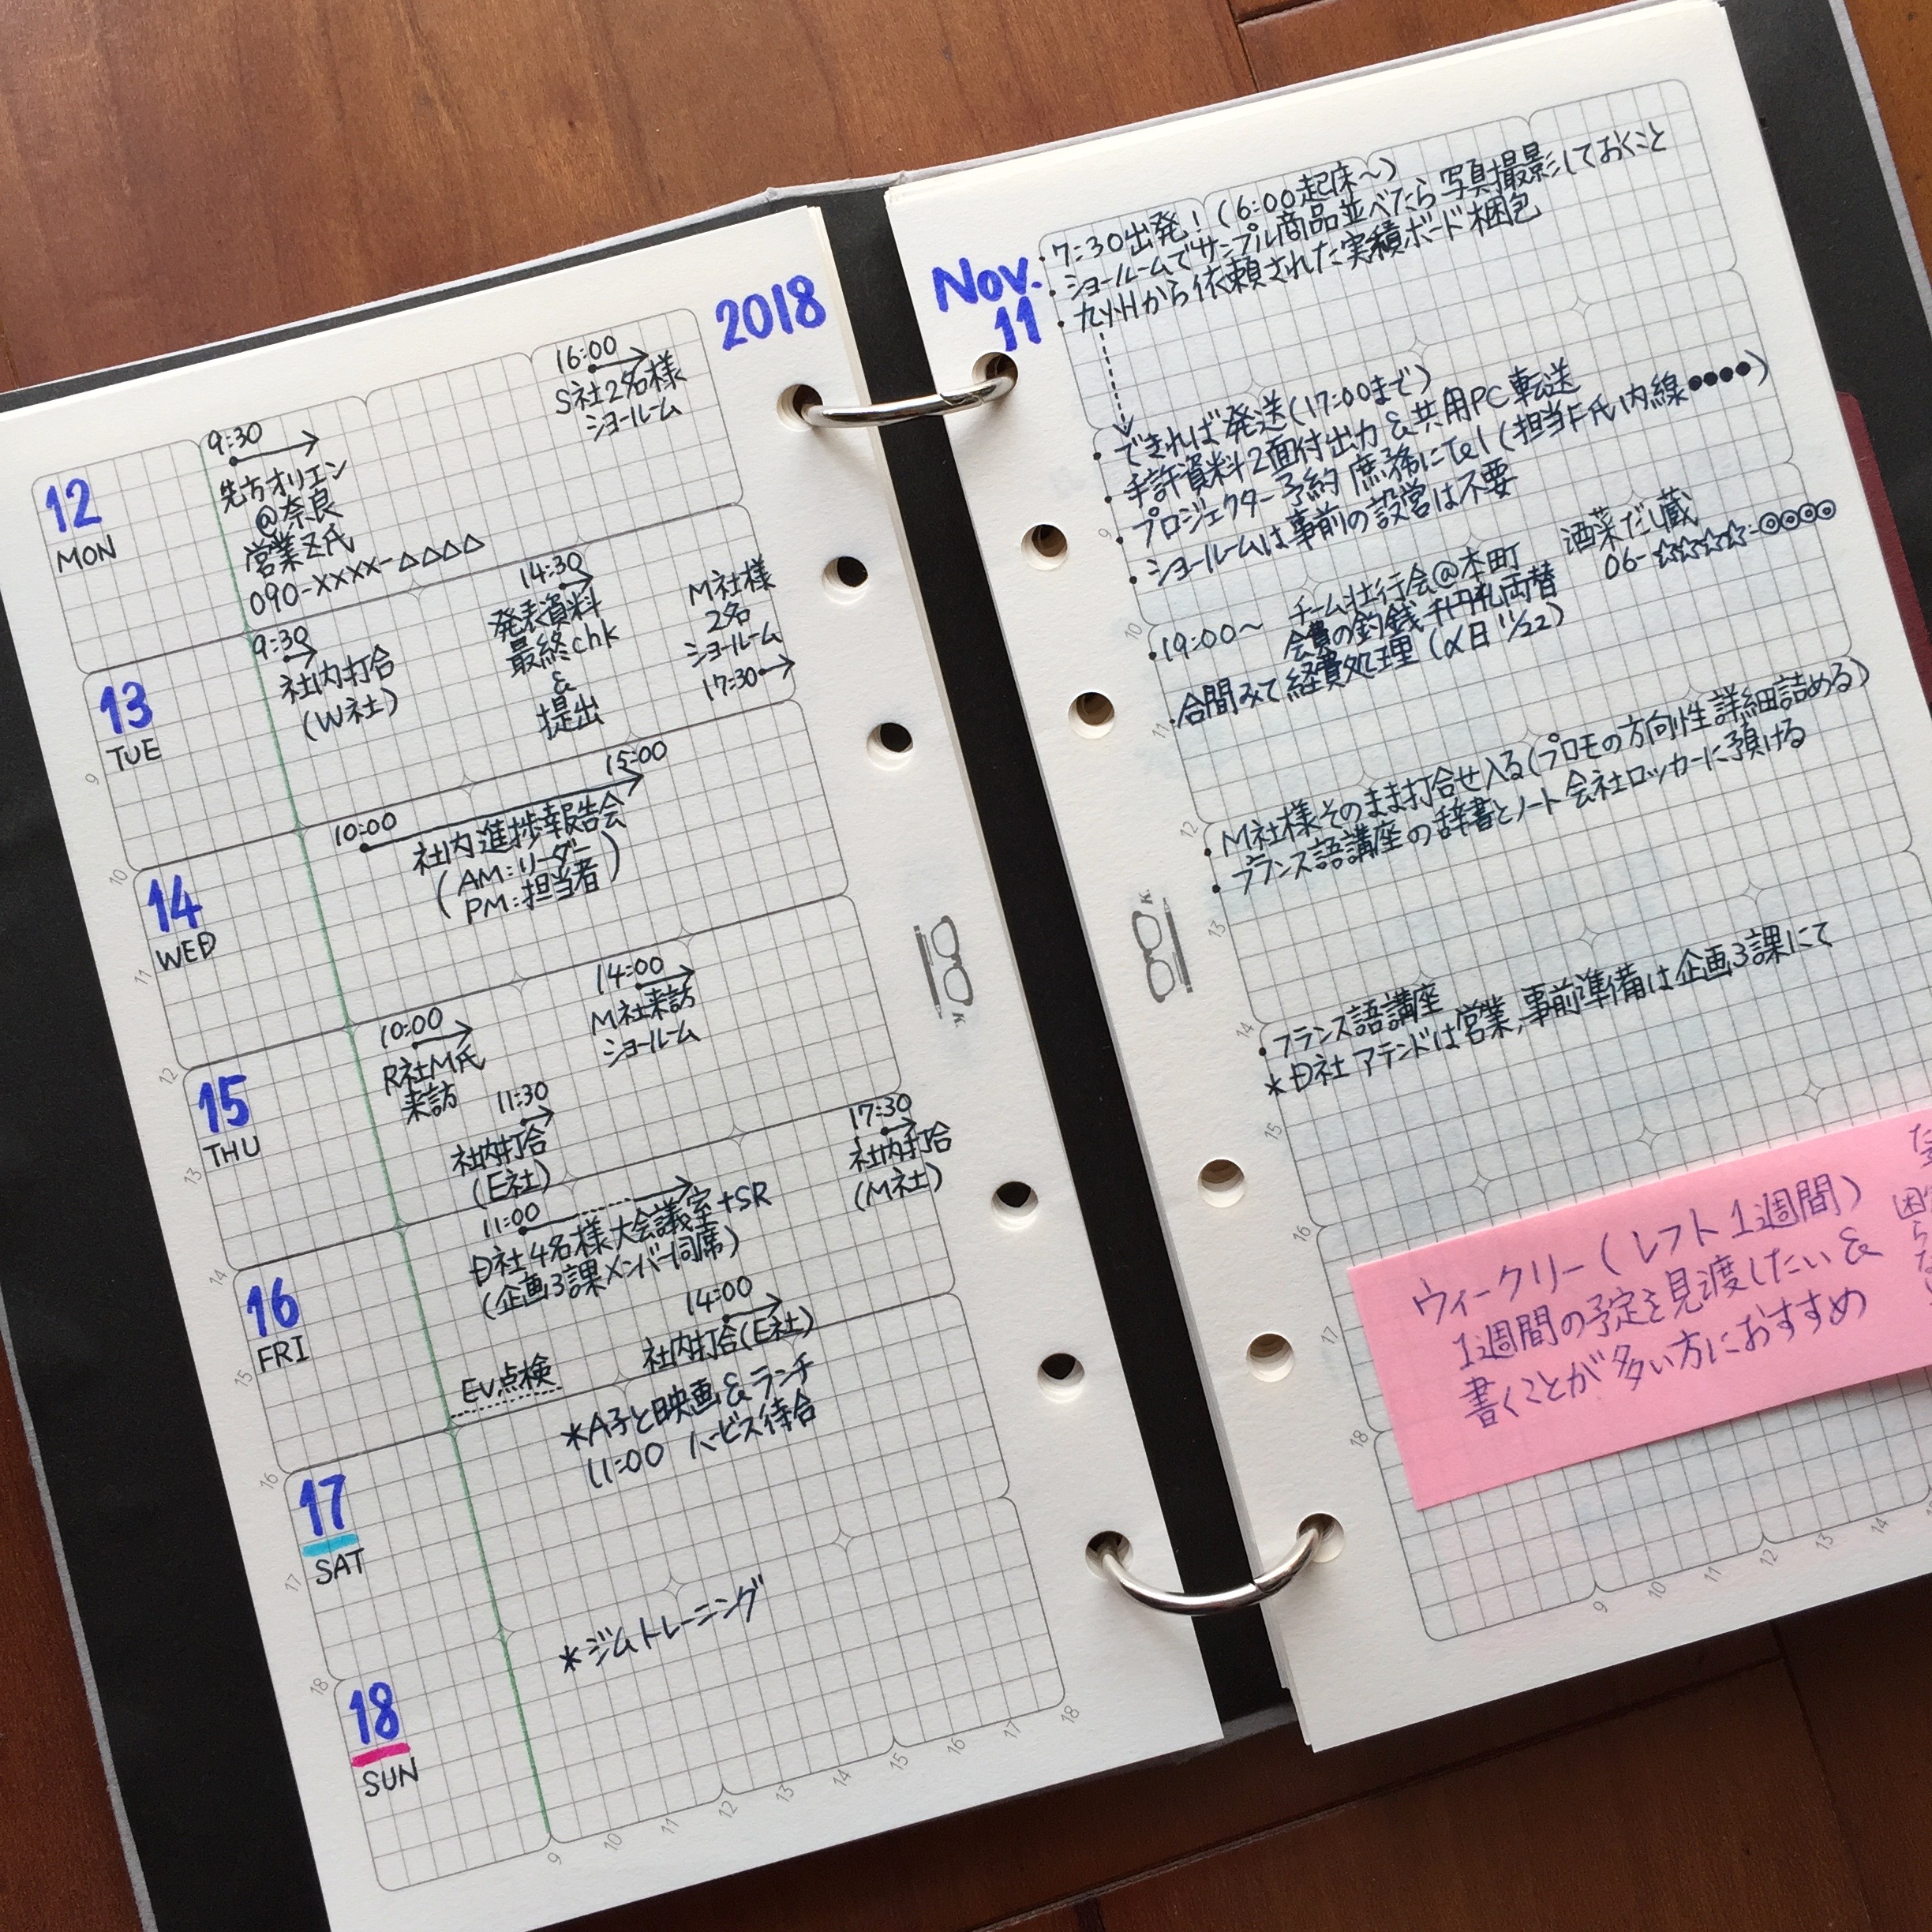 2018
12
MON
9:30
先方オリエン
@奈良
営業Z氏
090-XXXX-△△△△
16:00
S社2名様
ショールーム
13
TUE
9:30
社内打合
(W社)
14:30
発表資料
最終chk
&
提出
M社様
2名
ショールーム
17:30
14
WED
10:00
15:00
社内進捗報告会
(AM:リーダー
PM:担当者)
15
THU
10:00
R社M氏
来訪
11:30
社内打合
(E社)
14:00
M社来訪
ショールーム
17:30
社内打合
(M社)
16
FRI
11:00
D社4名様大会議室+SR
(企画3課メンバー同席)
14:00
社内打合(E社)
EV点検
17
SAT
*A子と映画&ランチ
11:00 ハービス待合
18
SUN
*ジムトレーニング
9
10
11
12
13
14
15
16
17
18
9
10
11
12
13
14
15
16
17
18
K
Nov.
11
・7:30出発!(6:00起床〜)
・ショールームでサンプル商品並べたら写真撮影しておくこと
・九州から依頼された実績ボード梱包
できれば発送(17:00まで)
・手許資料2面付出力&共用PC転送
・プロジェクター予約 庶務にtel(担当F氏内線●●●●)
・ショールームは事前の設営は不要
・19:00〜 チーム壮行会@本町 酒菜だし蔵
06-☆☆☆☆-◎◎◎◎
会費の釣銭 千円札両替
・合間みて経費処理(〆日11/22)
・M社様そのまま打合せ入る(プロモの方向性詳細詰める)
・フランス語講座の辞書とノート会社ロッカーに預ける
・フランス語講座
*D社アテンドは営業,事前準備は企画3課にて
K
9
10
11
12
13
14
15
16
17
18
9
10
11
12
13
14
ウィークリー(レフト1週間)
1週間の予定を見渡したい&
書くことが多い方におすすめ